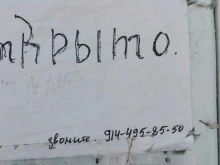 ткрыто.
звоните. 914-495-85-50